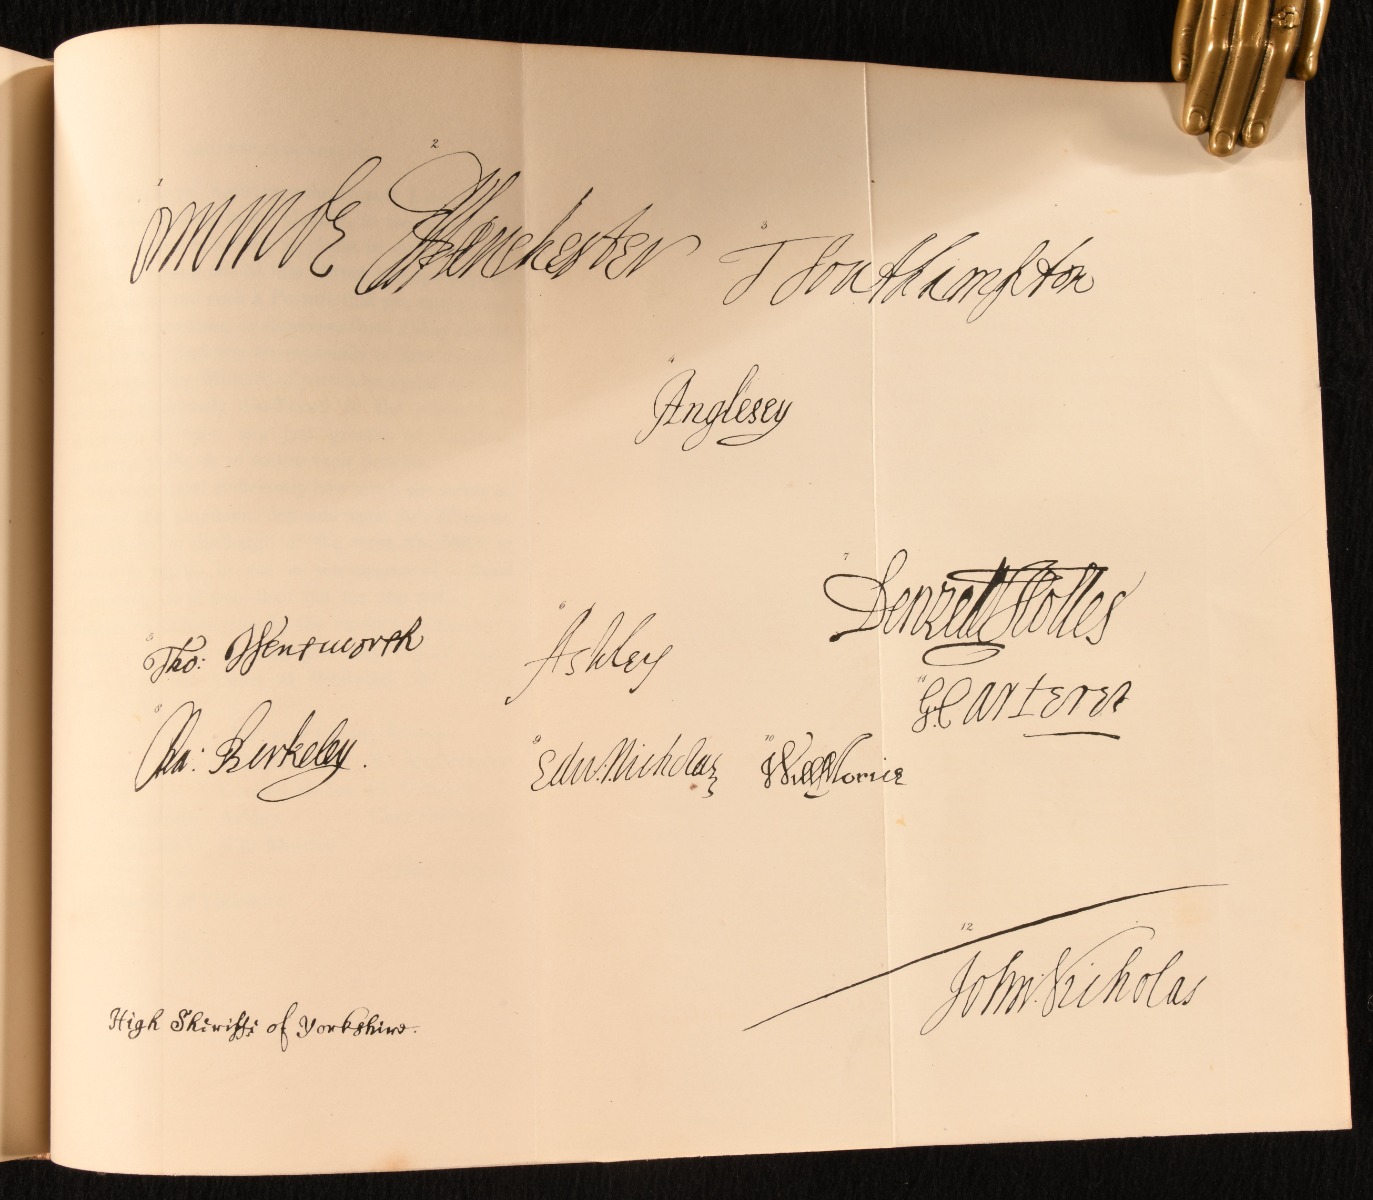 2
Ormonde Manchester
3
T Southampton
4
Anglesey
7
Denzell Holles
6
Tho: Wentworth Ashley
11
G: Carteret
8
Cha: Berkeley.
9 10
Edw. Nicholas Will Morice
12
John: Nicholas
High Sheriffe of Yorkshire.